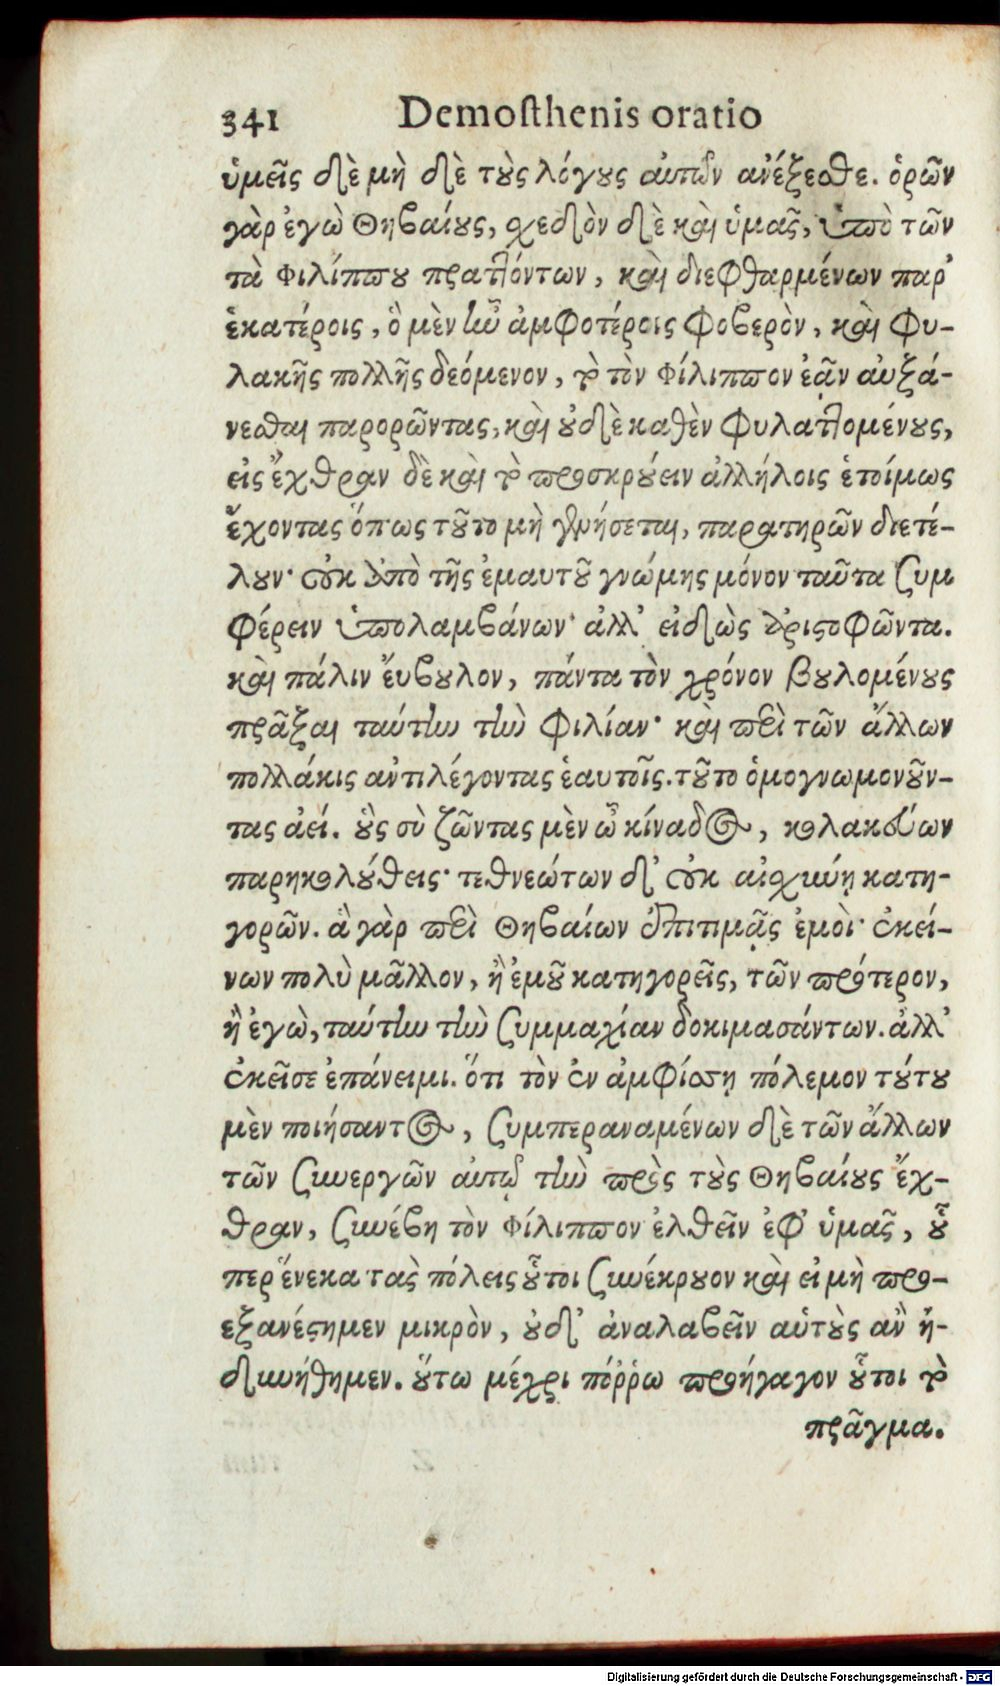 341 Demosthenis oratio
ὑμεῖς δὲ μὴ δὲ τοὺς λόγους αὐτῶν ἀνέξεσθε. ὁρῶν
γὰρ ἐγὼ Θηβαίους, σχεδὸν δὲ καὶ ὑμᾶς, ὑπὸ τῶν
τὰ Φιλίππου πραττόντων, καὶ διεφθαρμένων παρ'
ἑκατέροις, ὃ μὲν ἦν ἀμφοτέροις φοβερὸν, καὶ φυ-
λακῆς πολλῆς δεόμενον, τὸ τὸν Φίλιππον ἐᾷν αὐξά-
νεσθαι παρορῶντας, καὶ οὐδὲ καθὲν φυλαττομένους,
εἰς ἔχθραν δὲ καὶ τὸ προσκρούειν ἀλλήλοις ἑτοίμως
ἔχοντας ὅπως τοῦτο μὴ γενήσεται, παρατηρῶν διετέ-
λουν· οὐκ ἀπὸ τῆς ἐμαυτοῦ γνώμης μόνον ταῦτα συμ
φέρειν ὑπολαμβάνων· ἀλλ' εἰδὼς ἀριστοφῶντα.
καὶ πάλιν ἔυβουλον, πάντα τὸν χρόνον βουλομένους
πρᾶξαι ταύτην τὴν φιλίαν· καὶ περὶ τῶν ἄλλων
πολλάκις ἀντιλέγοντας ἑαυτοῖς. τοῦτο ὁμογνωμονοῦν-
τας ἀεί. οὓς σὺ ζῶντας μὲν ὦ κίναδος, κολακεύων
παρηκολούθεις· τεθνεώτων δ' οὐκ αἰσχύνῃ κατη-
γορῶν. ἃ γὰρ περὶ Θηβαίων ἐπιτιμᾷς ἐμοὶ· ἐκεί-
νων πολὺ μᾶλλον, ἢ ἐμοῦ κατηγορεῖς, τῶν πρότερον,
ἢ ἐγὼ, ταύτην τὴν συμμαχίαν δοκιμασάντων. ἀλλ'
ἐκεῖσε ἐπάνειμι. ὅτι τὸν ἐν ἀμφίσσῃ πόλεμον τούτου
μὲν ποιήσαντος, συμπεραναμένων δὲ τῶν ἄλλων
τῶν συνεργῶν αὐτῷ τὴν πρὸς τοὺς Θηβαίους ἔχ-
θραν, συνέβη τὸν Φίλιππον ἐλθεῖν ἐφ' ὑμᾶς, οὗ
περ ἕνεκα τὰς πόλεις οὗτοι συνέκρουον καὶ εἰ μὴ προ-
εξανέστημεν μικρὸν, οὐδ' ἀναλαβεῖν αὑτοὺς ἂν ἠ-
δυνήθημεν. οὕτω μέχρι πόῤῥω προήγαγον οὗτοι τὸ
πρᾶγμα.
Digitalisierung gefördert durch die Deutsche Forschungsgemeinschaft - DFG